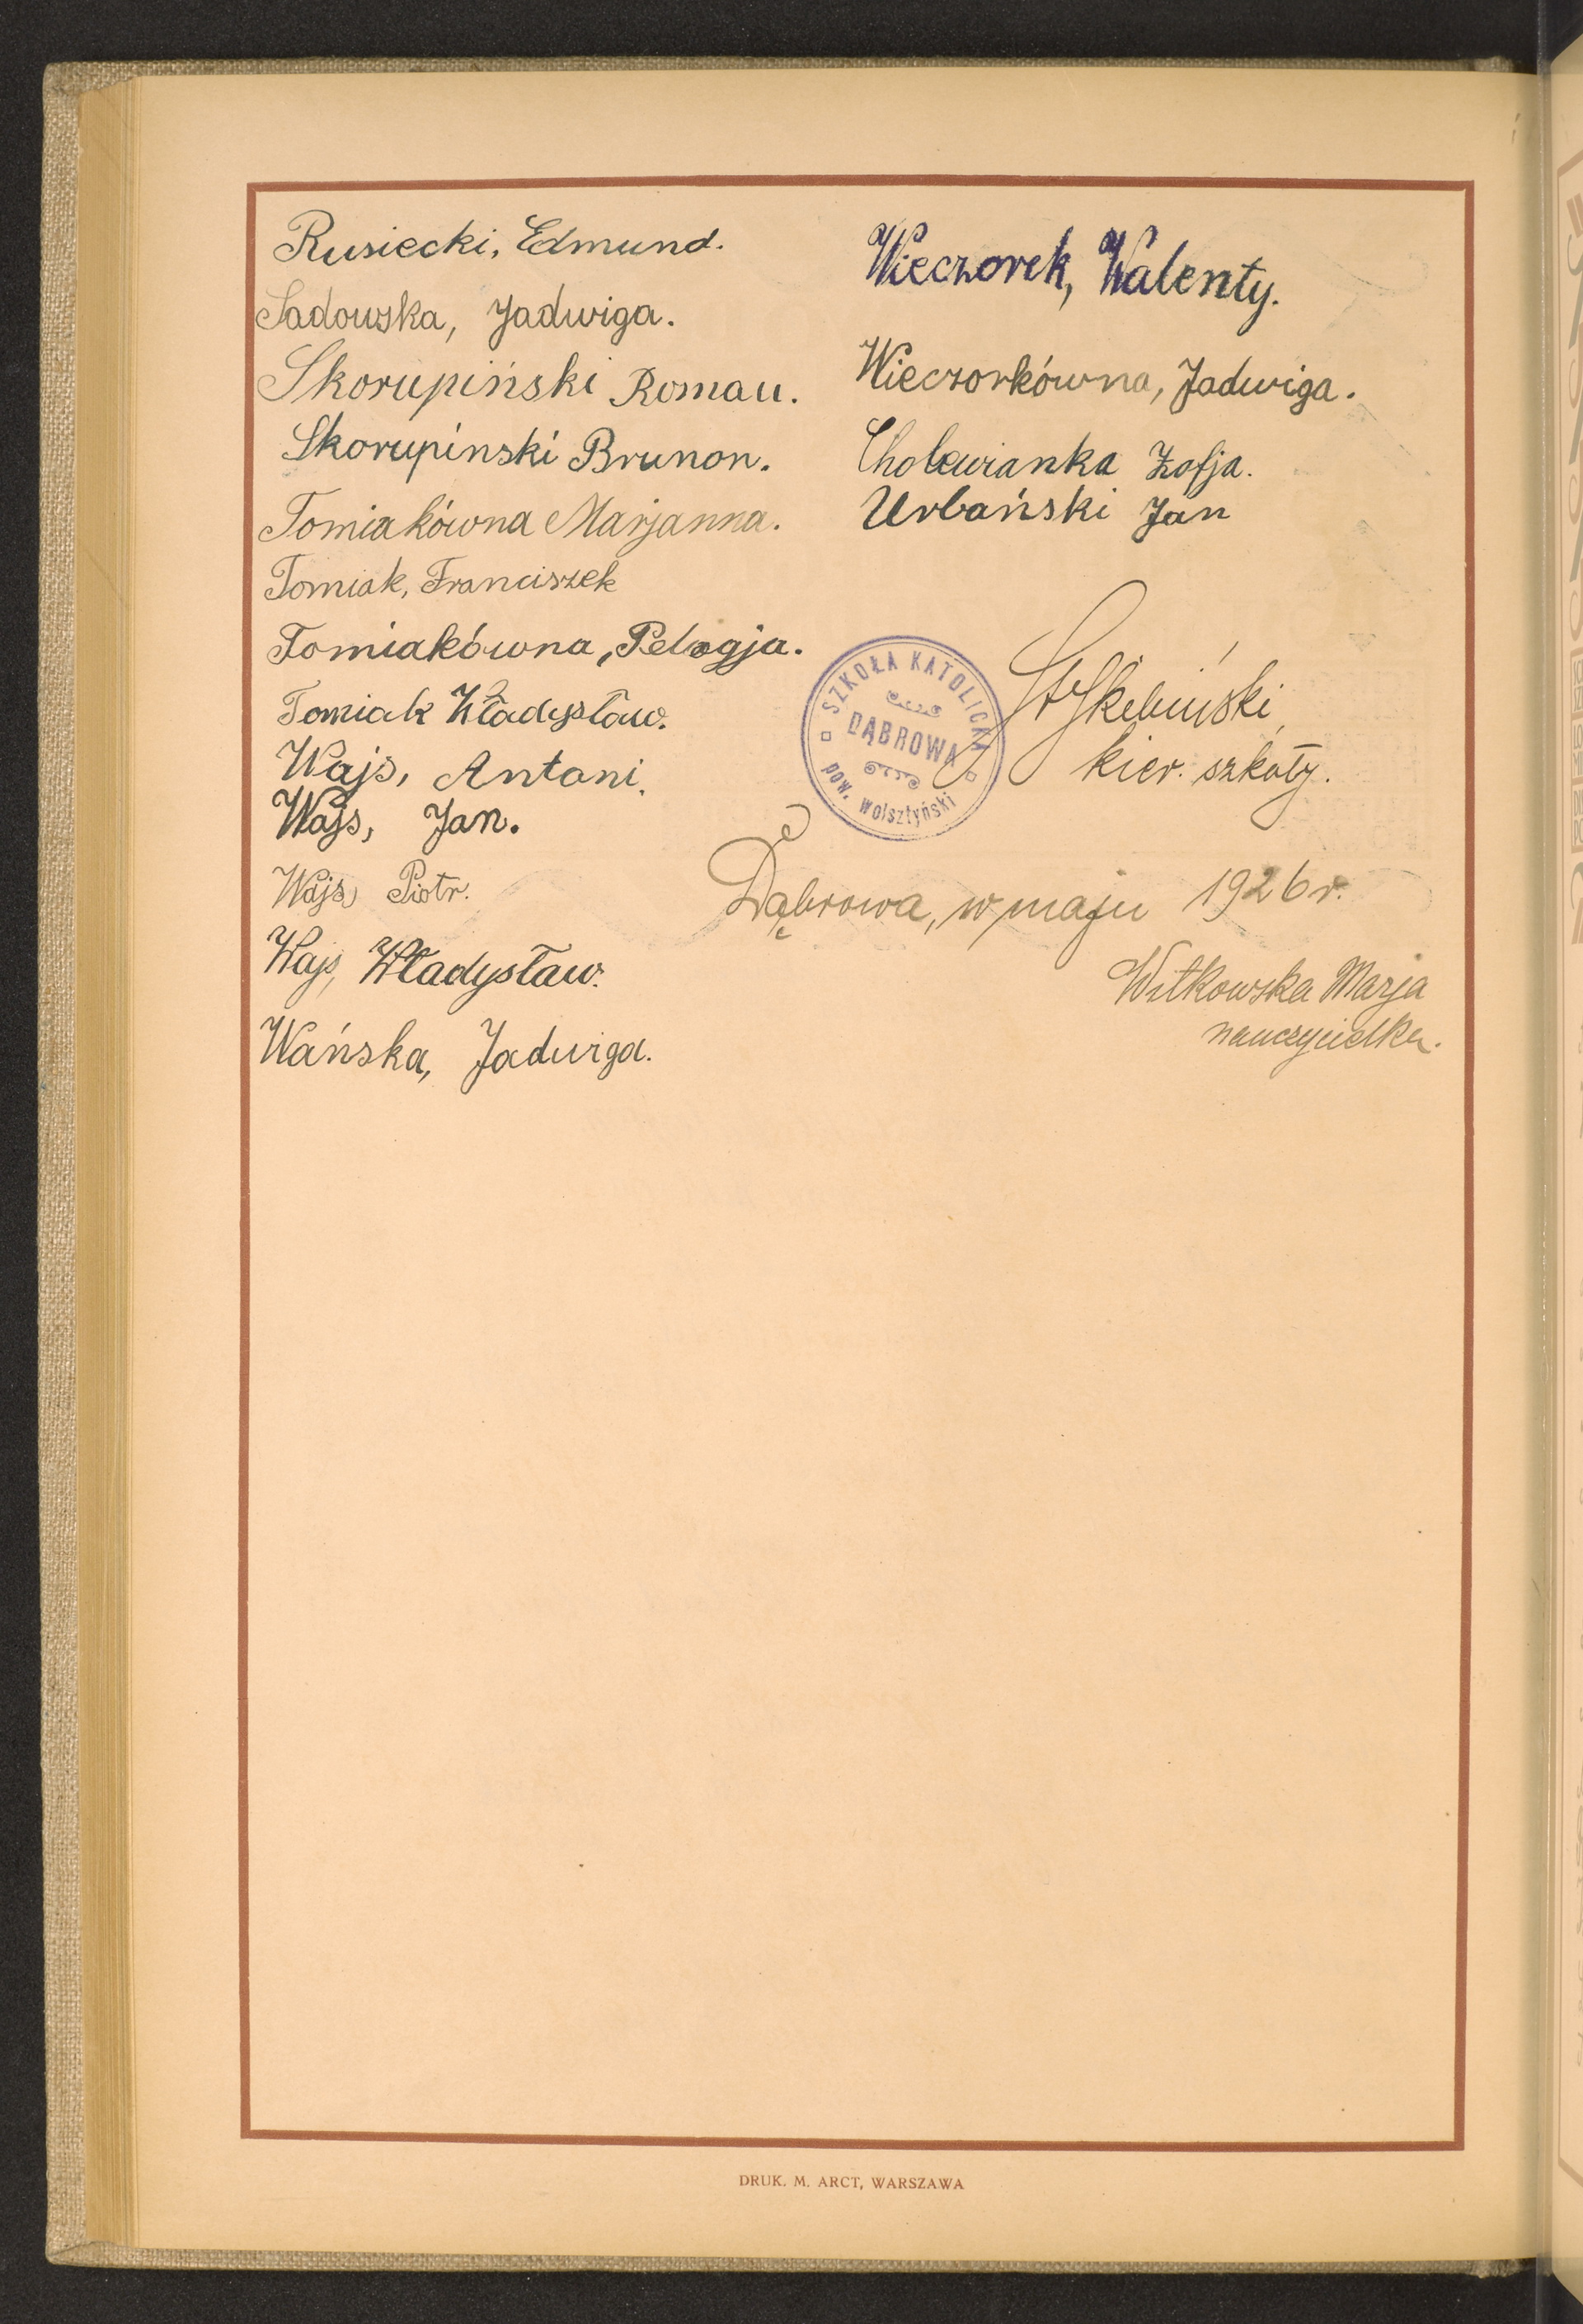 Rusiecki, Edmund.
Sadowska, Jadwiga.
Skorupiński Roman.
Skorupinski Brunon.
Tomiakówna Marjanna.
Tomiak, Franciszek
Tomiakówna, Pelagja.
Tomiak Władysław.
Wajs, Antoni.
Wajs, Jan.
Wajs, Piotr.
Wajs, Władysław.
Wańska, Jadwiga.
Wieczorek, Walenty.
Wieczorkówna, Jadwiga.
Cholewianka Zofja.
Urbański Jan
SZKOŁA KATOLICKA
DĄBROWA
pow. wolsztyński
kier. szkoły.
Dąbrowa, w maju 1926 r.
Witkowska Marja
nauczycielka.
DRUK. M. ARCT, WARSZAWA